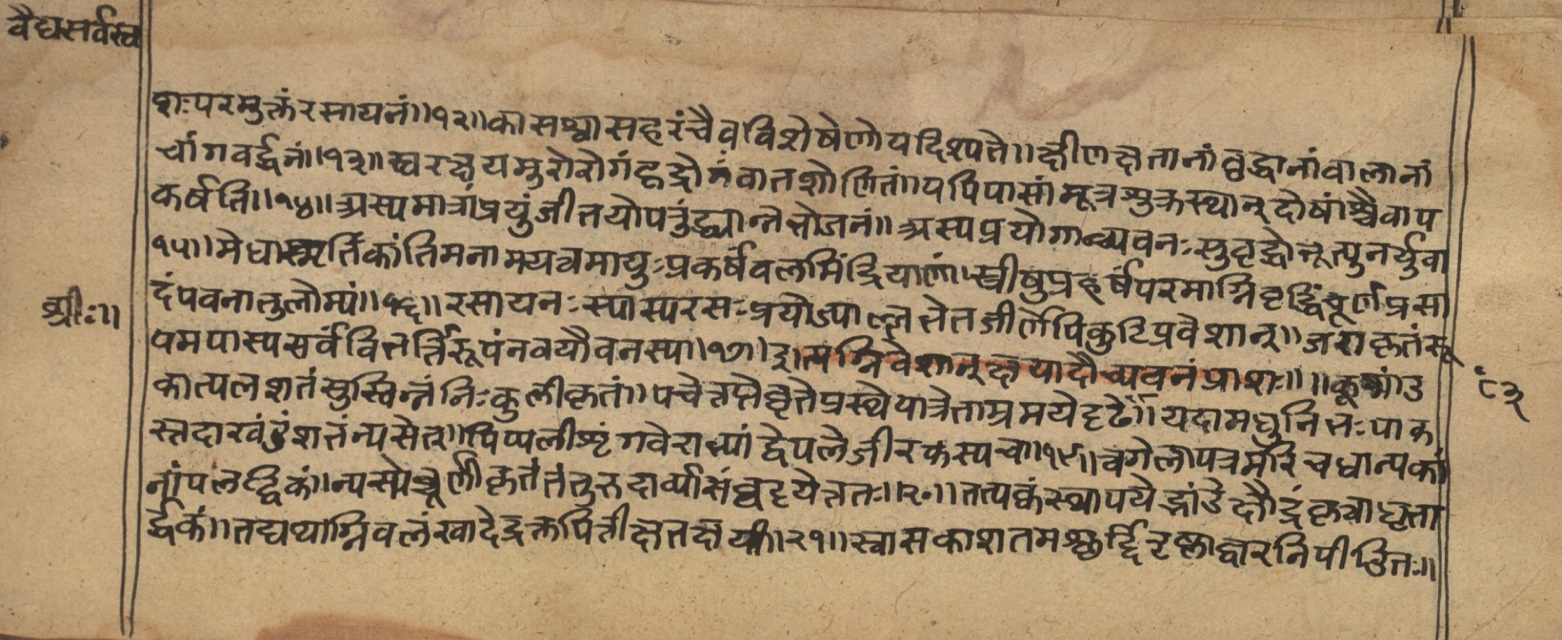 वैद्यसर्वस्व
शःपरमुक्तंरसायनं॥१२॥कासश्वासहरंचैवविशेषेणोयदिश्पते॥क्षीणक्षतानांवृद्धानांवालानां
चांगवर्द्धनं॥१३॥स्वरक्षयमुरोरोगंहृद्रोगंवातशोणितं॥यपिपासांमूत्रशुक्रस्थान्दोषांश्चैवाप
कर्षति॥१४॥अस्पमात्रांप्रयुंजीतयोपरुंद्ध्यान्नभोजनं॥अस्पप्रयोगाच्च्यवनःसुवृद्धोभूत्पुनर्युवा
१५॥मेधास्मृतिंकांतिमनामयत्वमायुःप्रकर्षंवलमिंद्रियाणां॥स्त्रीषुप्रहर्षंपरमाग्निवृद्धिंचूर्णप्रसा
दंपवनानुलोम्पं॥१६॥रसायनःस्पास्परसःप्रयोज्पाल्लभेतजीर्णोपिकुटिप्रवेशान्॥जराकृतंरू
पमपास्पसर्वंविभर्त्तिरूपंनवयौवनस्पा॥१७॥इत्पग्निवेशान्क्षयादौच्यवनंप्राशः॥॥कूष्मांउ
कात्पलशतंसुस्विन्नंनिःकुलीकृतं॥पचेत्तप्तेघृतेप्रस्थेपात्रेताम्रमयेदृढे॥यदामधुनिभःपाक
स्तदाखंडंशतंन्पसेत्॥पिप्पलीशृंगवेराभ्यांद्वेपलेजीरकस्पच॥१९॥त्वगेलापत्रमरिचधान्पका
नांपलर्द्धिकं॥न्पस्पेच्चूर्णीकृतंतंतुरुदार्व्यासंघट्टयेत्ततः॥२०॥तत्पक्वंस्थापयेद्भांडेक्षौद्रंकृत्वाघृता
र्द्धकं॥तद्यथाग्निवलंखादेद्रक्तपित्तीक्षतक्षयी॥२१॥स्वासकाशतमश्छर्द्दितृष्णाद्वारनिपीडितः॥
श्रीः॥
८३